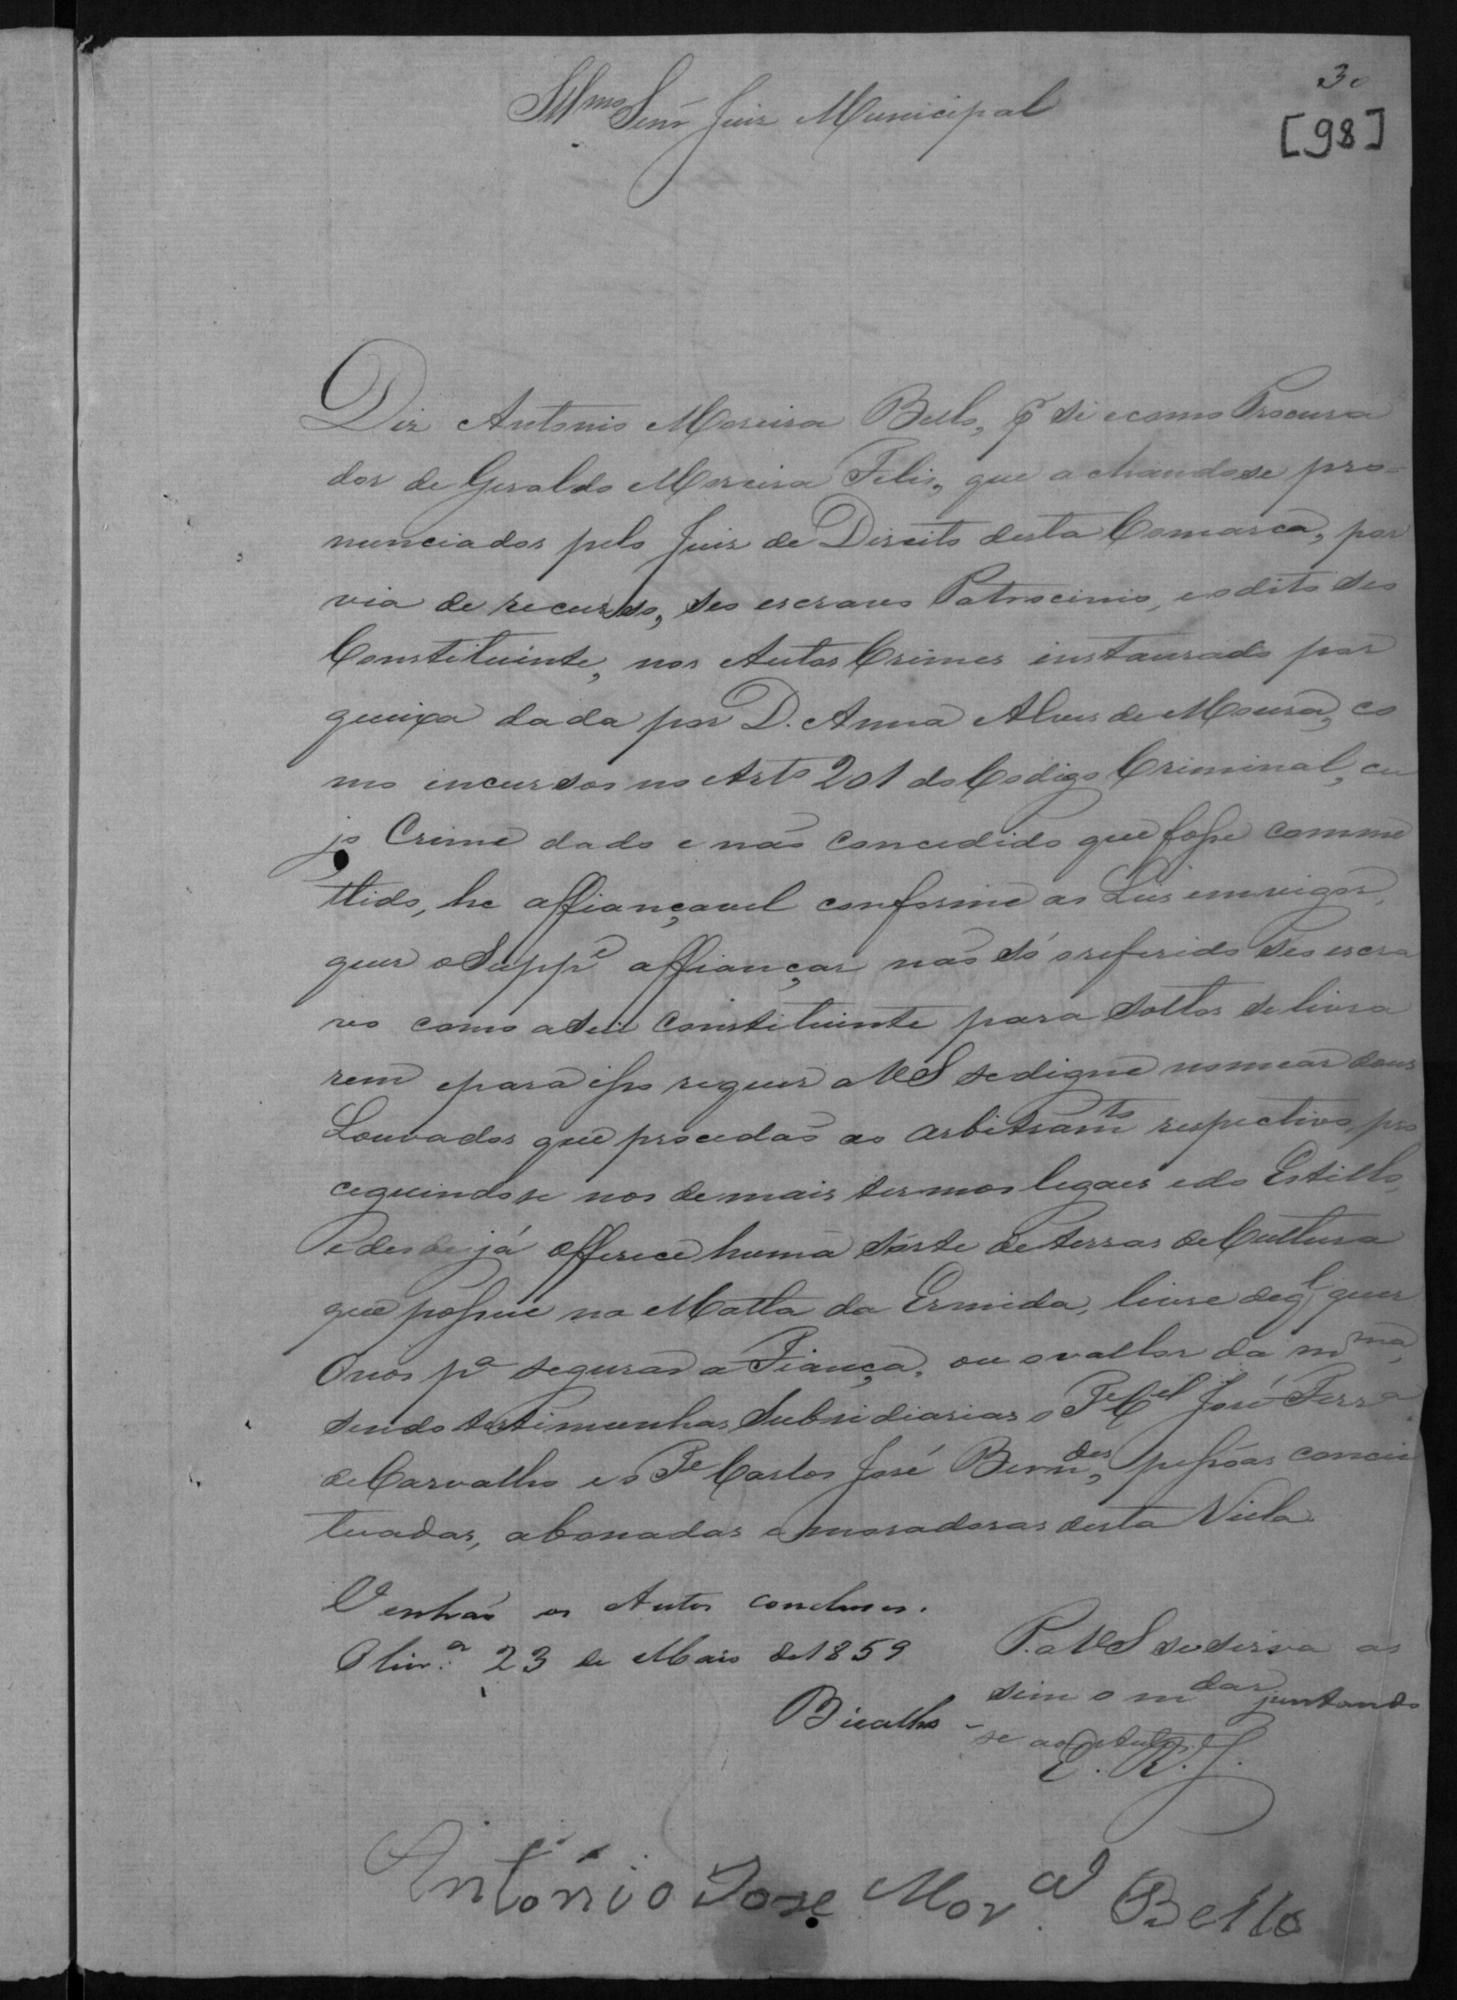 30
[98]
Illmo Senr Juiz Municipal
Diz Antonio Moreira Bello, por si e como Procura
dor de Geraldo Moreira Felis, que achandose pro-
nunciados pelo Juiz de Direito desta Comarca, por
via de recurso, seo escravo Patrocinio, e o dito seo
Constituinte, nos Autos Crimes instaurado por
queixa dada por D. Anna Alves de Moura, co
mo incursos no Arto 201 do Codigo Criminal, cu
jo Crime dado e não concedido que fosse comme
ttido, he affiançavel conforme as Leis em vigor,
quer o Suppe affiançar não só o referido seo escra
vo como a seu constituinte para soltos se livra
rem e para isso requer a VS se digne nomear dous
Louvados que procedão ao arbitramto respectivo, pro
ceguindose nos demais termos legaes e do Estillo
e desde já offerece huma sorte de terras de Cultura
que possue na Matta da Ermida, livre de ql quer
Onos pa segurar a Fiança, ou o vallor da mma,
sendo testimunhas Subsidiarias o Te Cel José Ferra
de Carvalho e o Te Carlos José Berndes, pessoas concei
tuadas, abonadas e moradoras desta Villa.
Venhão os Autos conclusos.
Olivra 23 de Maio de 1859
Bicalho
P. a VS se sirva as
sim o mdar juntando
se aos Autos
E. R. J.
António Jose Mora Bello